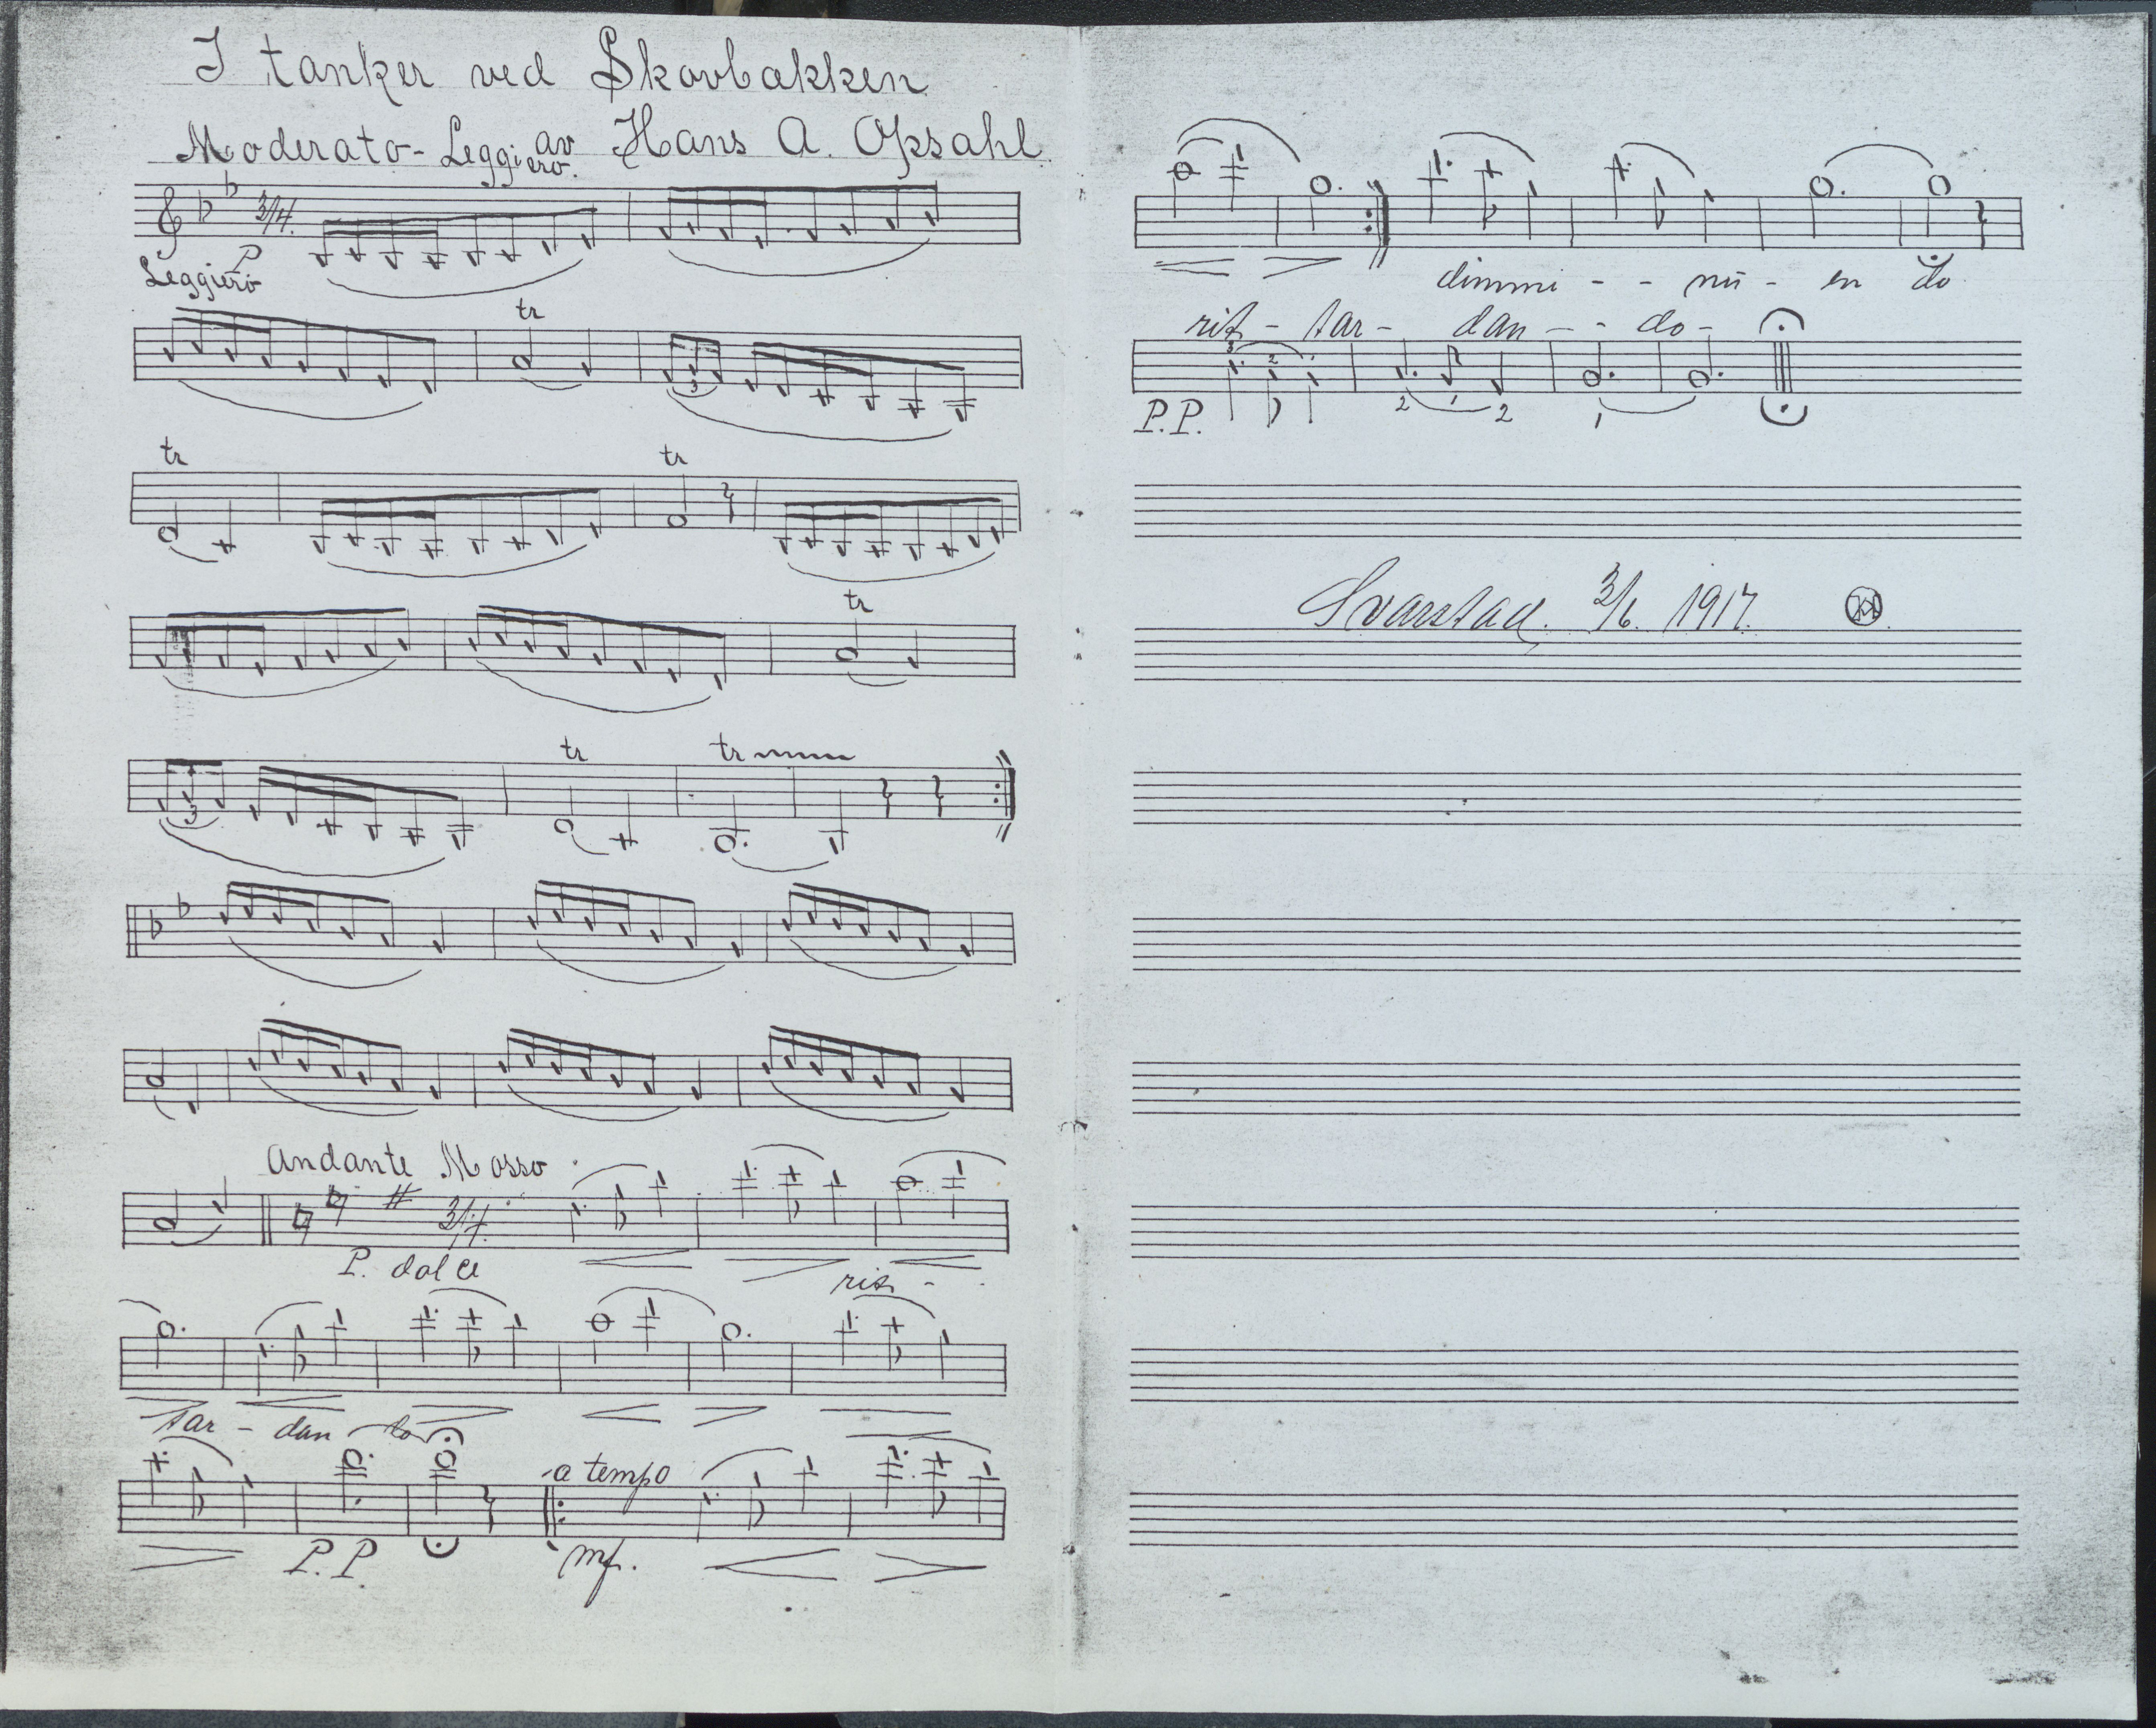 I tanker ved Skovbakken
Moderato - Leggiero. av Hans A. Opsahl.
3/4.
P
Leggiero
tr
3
tr
tr
tr
3
tr
tr
Andante Mosso
3/4.
P. dolce
rit -
tar - dan - do
a tempo
P.P. mf.
dimmi - - nu - en do
rit - tar - dan - - do -
3 2 1
P.P. 2 1 2 1
Svarstad. 3/6. 1917.